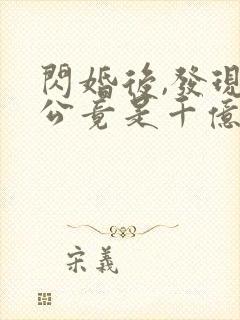 閃婚後,發現
公竟是千億
宋義